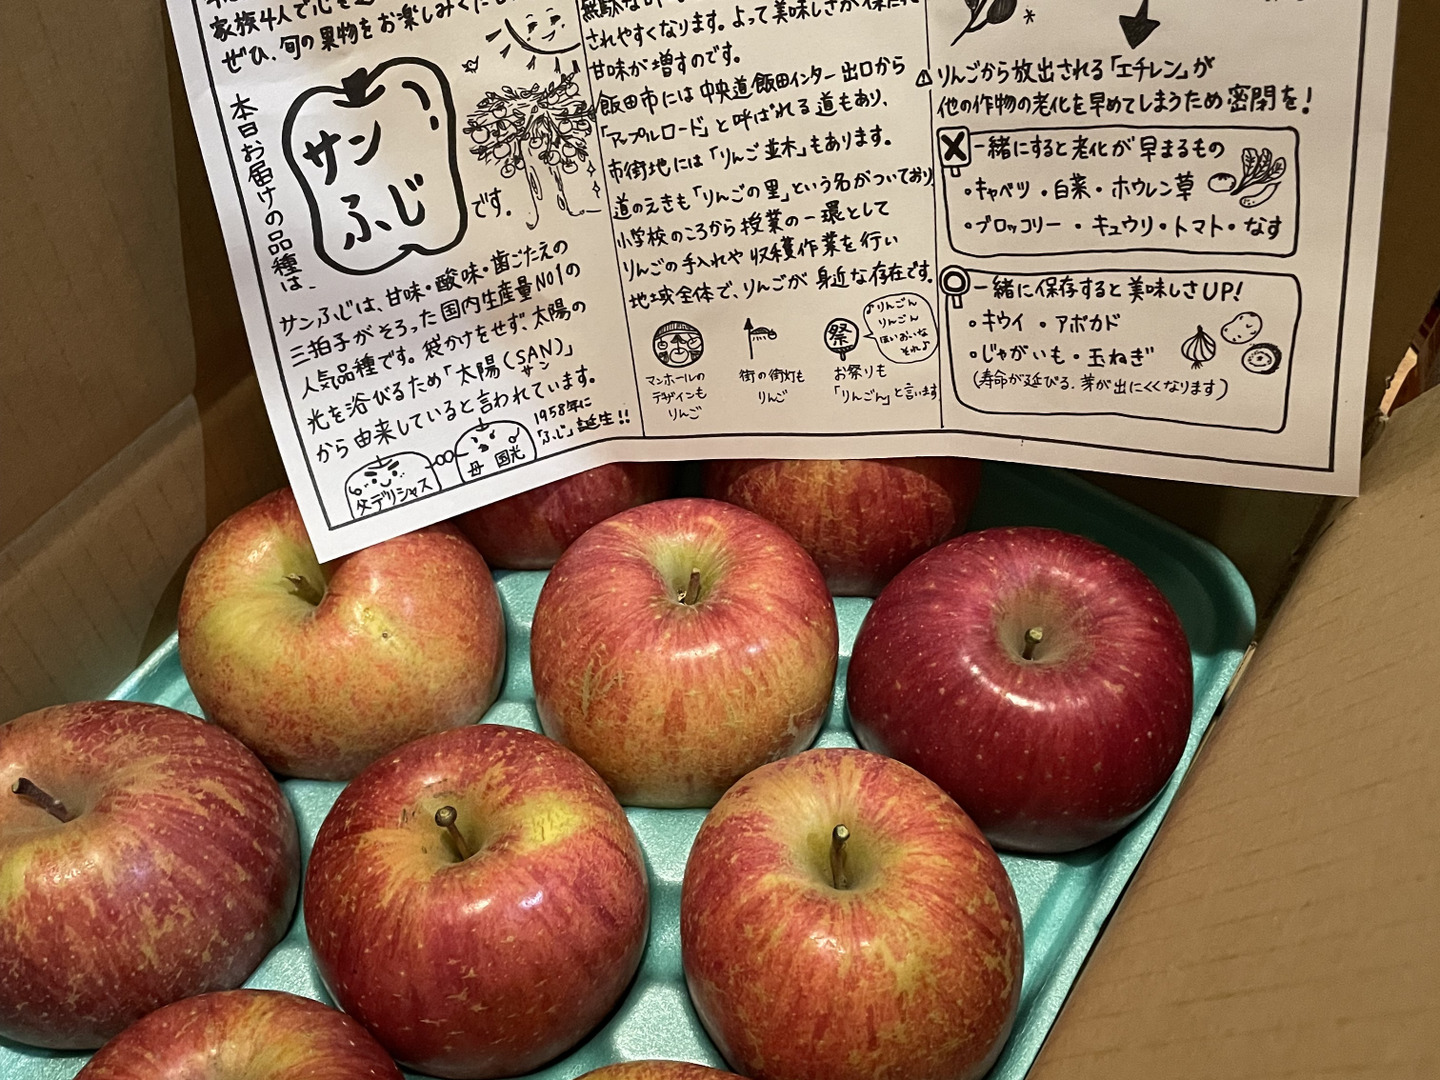 家族4人で心を
ぜひ、旬の果物をお楽しみくだ
本日お届けの品種は、
サン
ふじ
です。
サンふじは、甘味・酸味・歯ごたえの
三拍子がそろった国内生産量NO1の
人気品種です。袋かけをせず、太陽の
光を浴びるため「太陽(SAN)」
サン
から由来していると言われています。
1958年に
「ふじ」誕生!!
父デリシャス
母 国光
されやすくなります。よって美味しさが保たれ
甘味が増すのです。
飯田市には中央道飯田インター出口から
「アップルロード」と呼ばれる道もあり、
市街地には「りんご並木」もあります。
道のえきも「りんごの里」という名がついており
小学校のころから授業の一環として
りんごの手入れや収穫作業を行い
地域全体で、りんごが身近な存在です。
マンホールの
デザインも
りんご
街の街灯も
りんご
祭
お祭りも
「りんごん」と言います
♪りんごん
りんごん
ほいおいな
それ♪
⚠りんごから放出される「エチレン」が
他の作物の老化を早めてしまうため密閉を!
一緒にすると老化が早まるもの
・キャベツ・白菜・ホウレン草
・ブロッコリー・キュウリ・トマト・なす
一緒に保存すると美味しさUP!
・キウイ ・アボカド
・じゃがいも・玉ねぎ
(寿命が延びる、芽が出にくくなります)